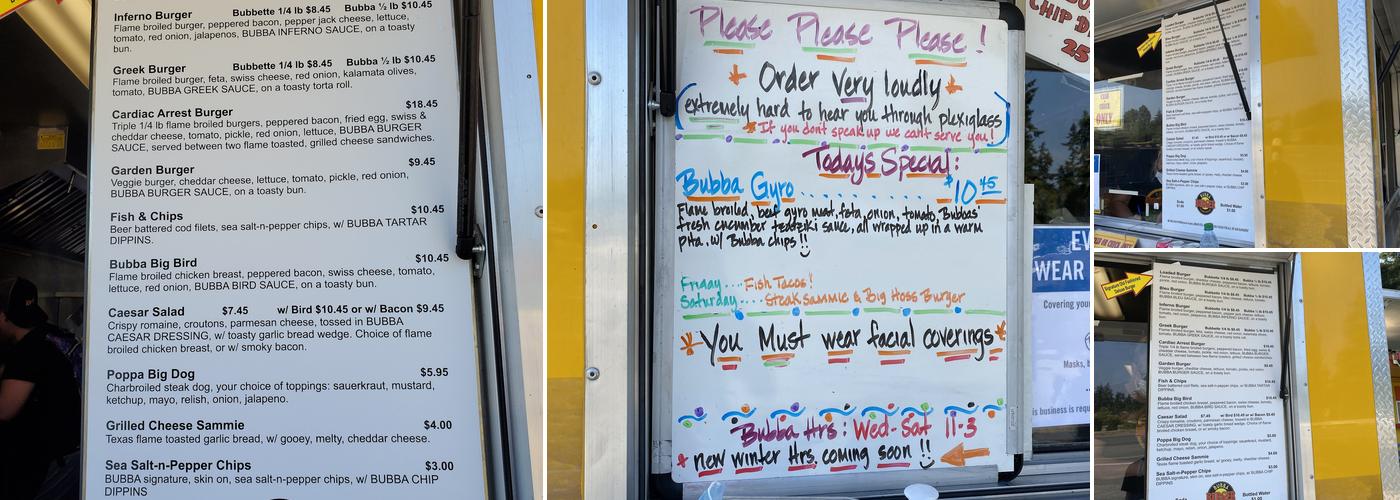 Inferno Burger Bubbette 1/4 lb $8.45 Bubba ½ lb $10.45
Flame broiled burger, peppered bacon, pepper jack cheese, lettuce,
tomato, red onion, jalapenos, BUBBA INFERNO SAUCE, on a toasty
bun.
Greek Burger Bubbette 1/4 lb $8.45 Bubba ½ lb $10.45
Flame broiled burger, feta, swiss cheese, red onion, kalamata olives,
tomato, BUBBA GREEK SAUCE, on a toasty torta roll.
Cardiac Arrest Burger $18.45
Triple 1/4 lb flame broiled burgers, peppered bacon, fried egg, swiss &
cheddar cheese, tomato, pickle, red onion, lettuce, BUBBA BURGER
SAUCE, served between two flame toasted, grilled cheese sandwiches.
Garden Burger $9.45
Veggie burger, cheddar cheese, lettuce, tomato, pickle, red onion,
BUBBA BURGER SAUCE, on a toasty bun.
Fish & Chips $10.45
Beer battered cod filets, sea salt-n-pepper chips, w/ BUBBA TARTAR
DIPPINS.
Bubba Big Bird $10.45
Flame broiled chicken breast, peppered bacon, swiss cheese, tomato,
lettuce, red onion, BUBBA BIRD SAUCE, on a toasty bun.
Caesar Salad $7.45 w/ Bird $10.45 or w/ Bacon $9.45
Crispy romaine, croutons, parmesan cheese, tossed in BUBBA
CAESAR DRESSING, w/ toasty garlic bread wedge. Choice of flame
broiled chicken breast, or w/ smoky bacon.
Poppa Big Dog $5.95
Charbroiled steak dog, your choice of toppings: sauerkraut, mustard,
ketchup, mayo, relish, onion, jalapeno.
Grilled Cheese Sammie $4.00
Texas flame toasted garlic bread, w/ gooey, melty, cheddar cheese.
Sea Salt-n-Pepper Chips $3.00
BUBBA signature, skin on, sea salt-n-pepper chips, w/ BUBBA CHIP
DIPPINS
Please Please Please !
Order Very loudly
(extremely hard to hear you through plexiglass)
If you don't speak up we can't serve you!
Todays Special:
Bubba Gyro........ $10 45
Flame broiled, beef gyro meat, feta, onion, tomato, Bubbas'
fresh cucumber tzadziki sauce, all wrapped up in a warm
pita. w/ Bubba chips !!
Friday .... Fish Tacos!
Saturday .... Steak Sammie & Big Hoss Burger
*You Must wear facial coverings*
Bubba Hrs: Wed-Sat 11-3
* new winter Hrs. coming soon !!
CHIP
25
WEAR
Covering your
Masks,
is business is
Loaded Burger
Bleu Burger
Inferno Burger
Greek Burger
Cardiac Arrest Burger
Garden Burger
Fish & Chips
Bubba Big Bird
Caesar Salad
Poppa Big Dog
Grilled Cheese Sammie
Sea Salt-n-Pepper Chips
Bottled Water
$1.00
ONLY
Signature Old Fashioned
Deluxe Burger
Loaded Burger
Bleu Burger
Inferno Burger
Greek Burger
Cardiac Arrest Burger
Garden Burger
Fish & Chips
Bubba Big Bird
Caesar Salad
Poppa Big Dog
Grilled Cheese Sammie
Sea Salt-n-Pepper Chips
Bottled Water